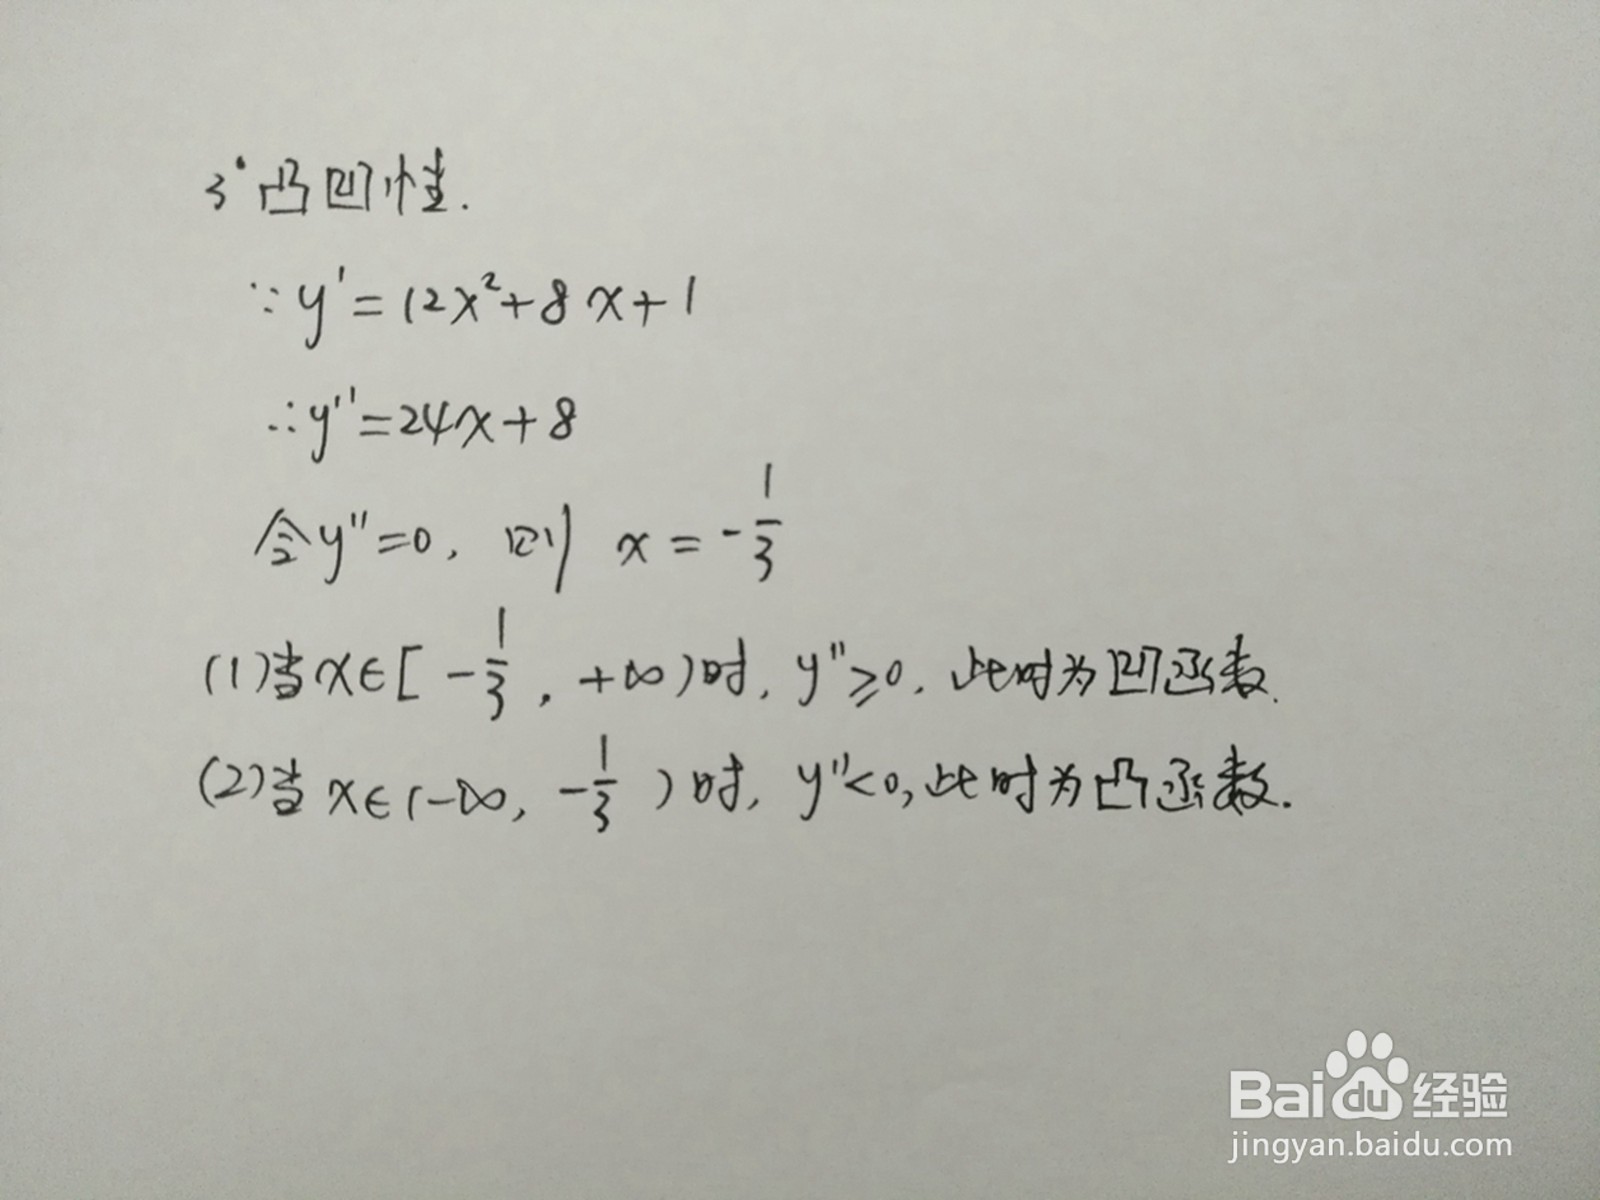 3° 凸凹性.
∵y'=12x²+8x+1
∴y''=24x+8
令y''=0, 则 x=-1/3
(1)当x∈[-1/3, +∞)时, y''≥0, 此时为凹函数.
(2)当x∈(-∞, -1/3)时, y''<0, 此时为凸函数.
Baidu经验
jingyan.baidu.com